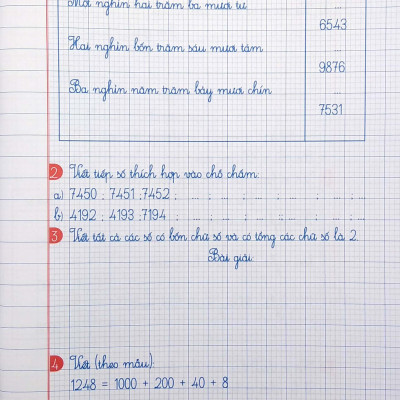 Một nghìn hai trăm ba mươi tư ...
6543
Hai nghìn bốn trăm sáu mươi tám ...
9876
Ba nghìn năm trăm bảy mươi chín ...
7531
2 Viết tiếp số thích hợp vào chỗ chấm:
a) 7450 ; 7451 ; 7452 ; ... ; ... ; ... ; ... ; ... ; ...
b) 4192 ; 4193 ; 7194 ; ... ; ... ; ... ; ... ; ... ; ...
3 Viết tất cả các số có bốn chữ số và có tổng các chữ số là 2.
Bài giải
4 Viết (theo mẫu):
1248 = 1000 + 200 + 40 + 8